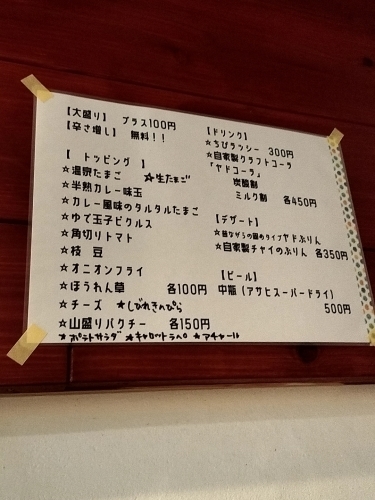 【大盛り】 プラス100円
【辛さ増し】 無料!!
【 トッピング 】
☆温泉たまご ☆生たまご
☆半熟カレー味玉
☆カレー風味のタルタルたまご
☆ゆで玉子ピクルス
☆角切りトマト
☆枝 豆
☆オニオンフライ
☆ほうれん草 各100円
☆チーズ ★しびれきのぴら
☆山盛りパクチー 各150円
★ポテトサラダ ★キャロットラペ ★アチャール
【ドリンク】
☆ちびラッシー 300円
☆自家製クラフトコーラ
「ヤドコーラ」
炭酸割
ミルク割 各450円
【デザート】
☆昔ながらの固めタイプヤドぷりん
☆自家製チャイのぷりん 各350円
【ビール】
中瓶(アサヒスーパードライ)
500円